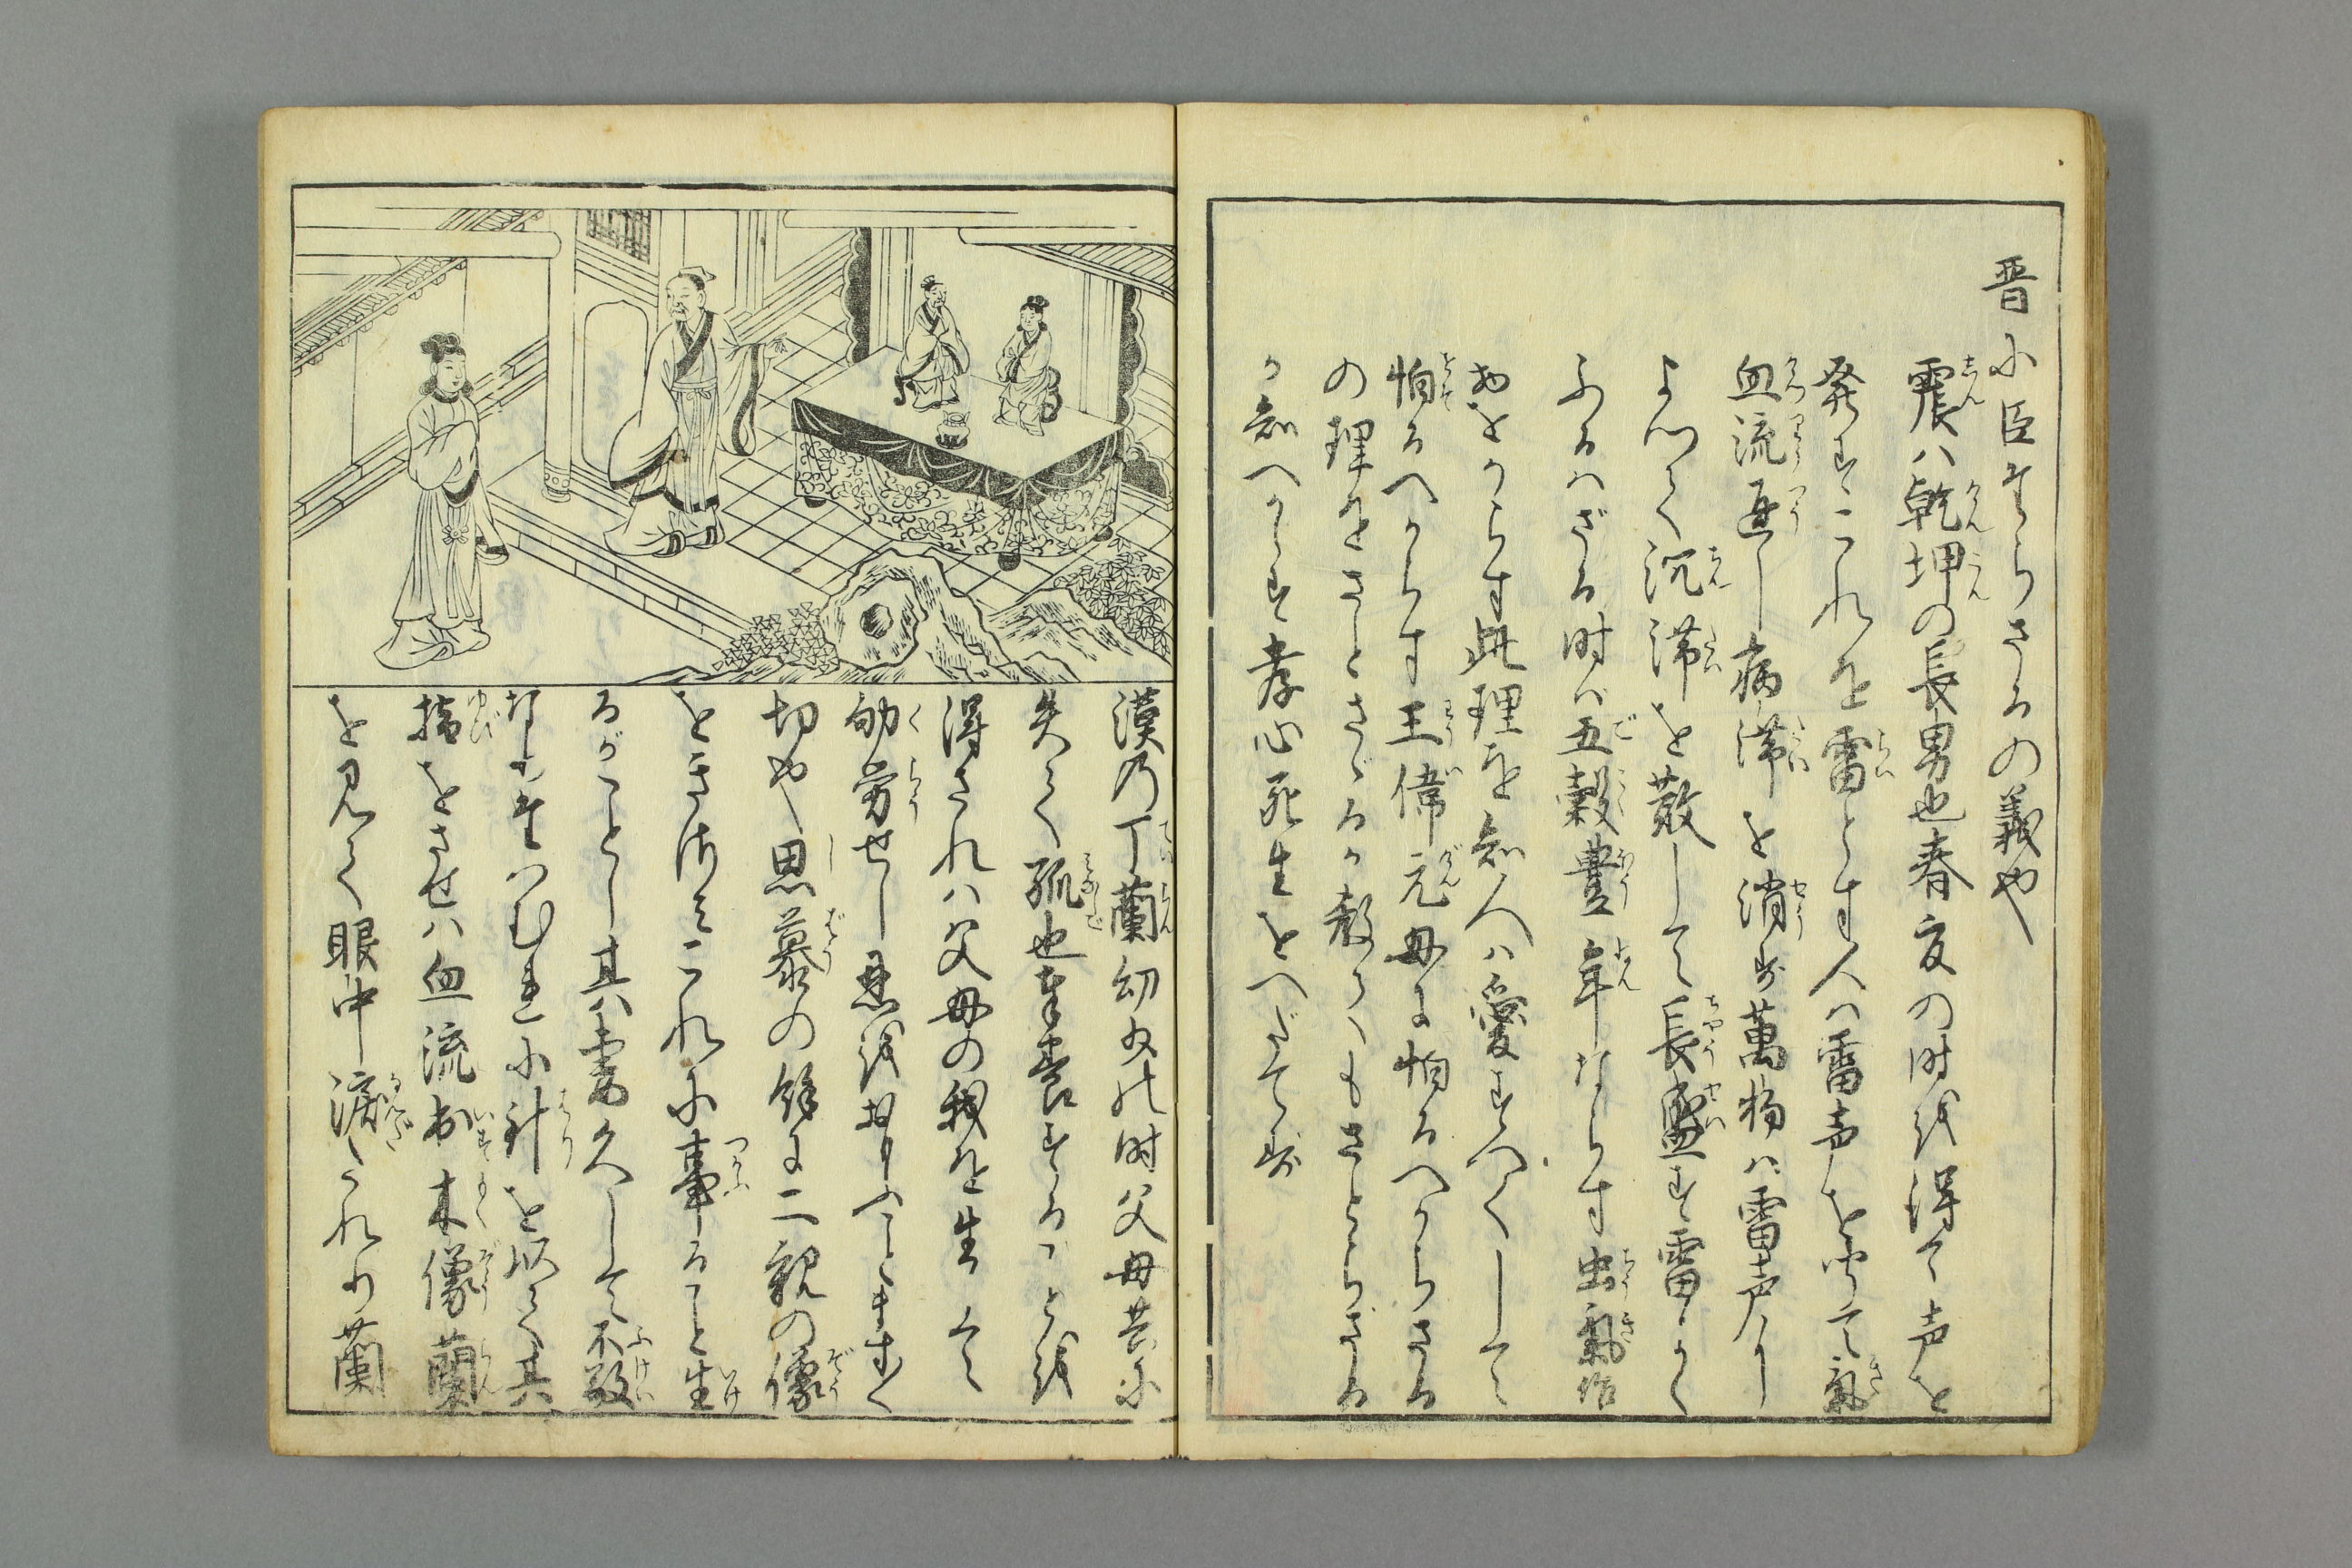 晋に臣たらさるの義や
震ハ乾坤の長男也春夏の時を得て声を
発すこれを雷とす人ハ雷声を聞て気
血流通し病滞を消す萬物ハ雷声に
よつて沉滞を散して長盛す雷よく
ふるハざる時ハ五穀豊年ならす虫氣作
物をからす此理を知人ハ愛すべくして
怕るへからす王偉元母に怕るへからさる
の理をさとさゞるか教てもさとらざる
か知へからす孝心死生をへだてす
漢乃丁蘭幼少の時父母共に
失て孤也奉養することを
得されハ父母の我を生して
劬労せし恩をおもふことます〱
切や思慕の餘に二親の像
をきざミこれに事ること生
るがことし其妻久しして不敬
なりたハむれに針を以て其
指をさせハ血流出木像蘭
を見て眼中涙たれり蘭